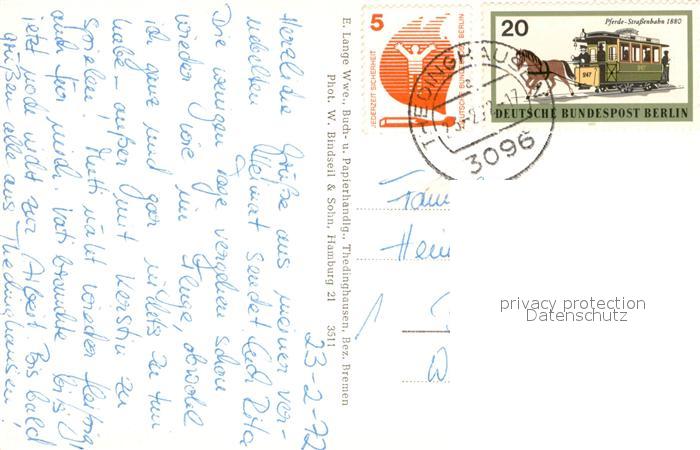 23-2-72
Herzliche Grüße aus meiner ver-
Heimat sendet Euch Rita
Die wenigen Tage vergehen schon
wieder wie im Fluge, obwohl
ich ganz und gar nichts zu tun
habe - außer mit Kerstin zu
spielen. Mutti näht wieder fleißig
auch für mich. Vati brauchte bis
jetzt noch nicht zur Arbeit. Bis bald
grüßen alle aus Thedinghausen!
E. Lange Wwe., Buch- u. Papierhandlg., Thedinghausen, Bez. Bremen
Phot. W. Bindseil & Sohn, Hamburg 21 3511
5
JEDERZEIT SICHERHEIT
DEUTSCHE BUNDESPOST BERLIN
20
Pferde-Straßenbahn 1880
247
247
DEUTSCHE BUNDESPOST BERLIN
THEDINGHAUSEN
3096
Fam
Hein
privacy protection
Datenschutz